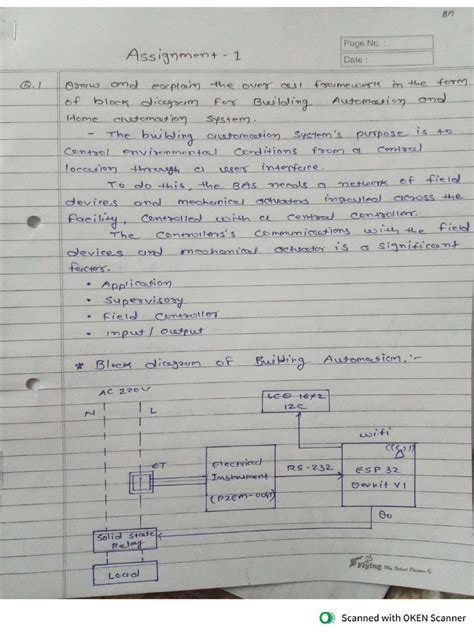 BA
Page No. :
Date :
Assignment - 1
Q.1 Draw and explain the over all framework in the form
of block diagram For Building Automation and
Home automation System.
- The building automation System's purpose is to
control environmental Conditions from a central
location through a user interface.
To do this, the BAS needs a network of field
devices and mechanical actuators installed across the
facility, controlled with a central controller.
The Controllers's communications with the field
devices and mechanical actuator is a significant
factor.
• Application
• Supervisory
• Field Controller
• input / output
* Block diagram of Building Automation :-
AC 220V
LCD 16x2
I2C
N
L
wifi
CT
Electrical
Instrument
(PZEM-004T)
RS-232
ESP 32
Devkit V1
Do
Solid State
Relay
Load
Flying
Scanned with OKEN Scanner